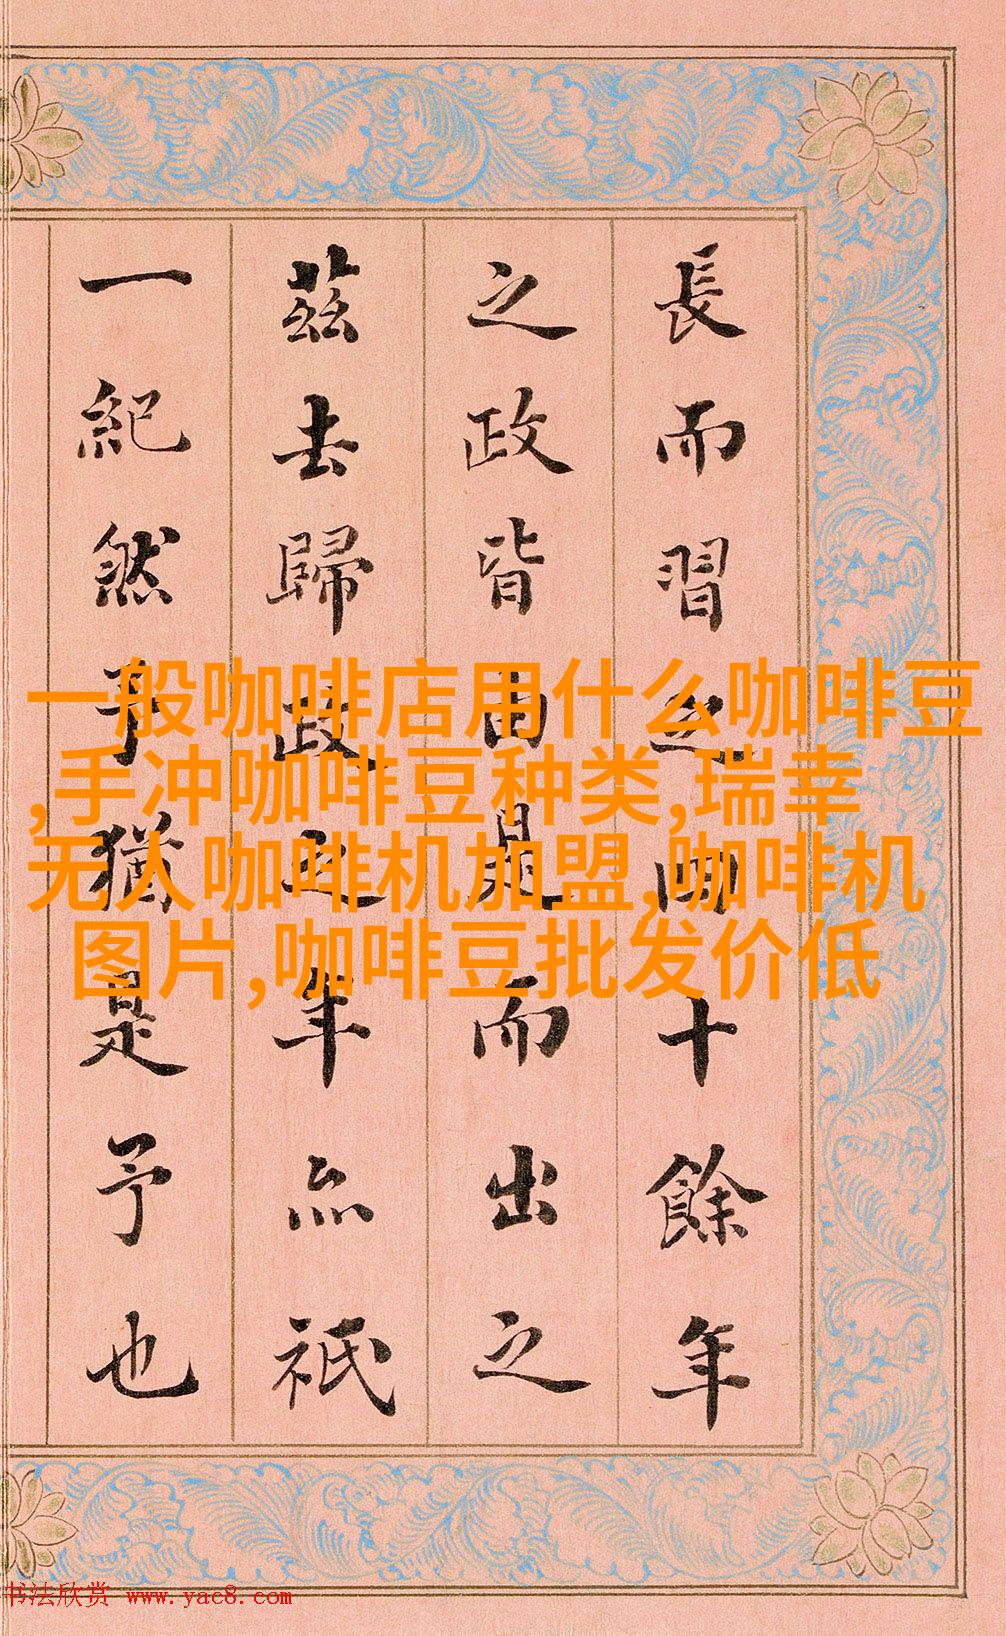 長而習之四十餘年
之政皆由是而出之
茲去歸政之年亦祇
一紀然予猶是予也
一般咖啡店用什么咖啡豆
,手冲咖啡豆种类,瑞幸
无人咖啡机加盟,咖啡机
图片,咖啡豆批发价低
书法欣赏 www.yac8.com